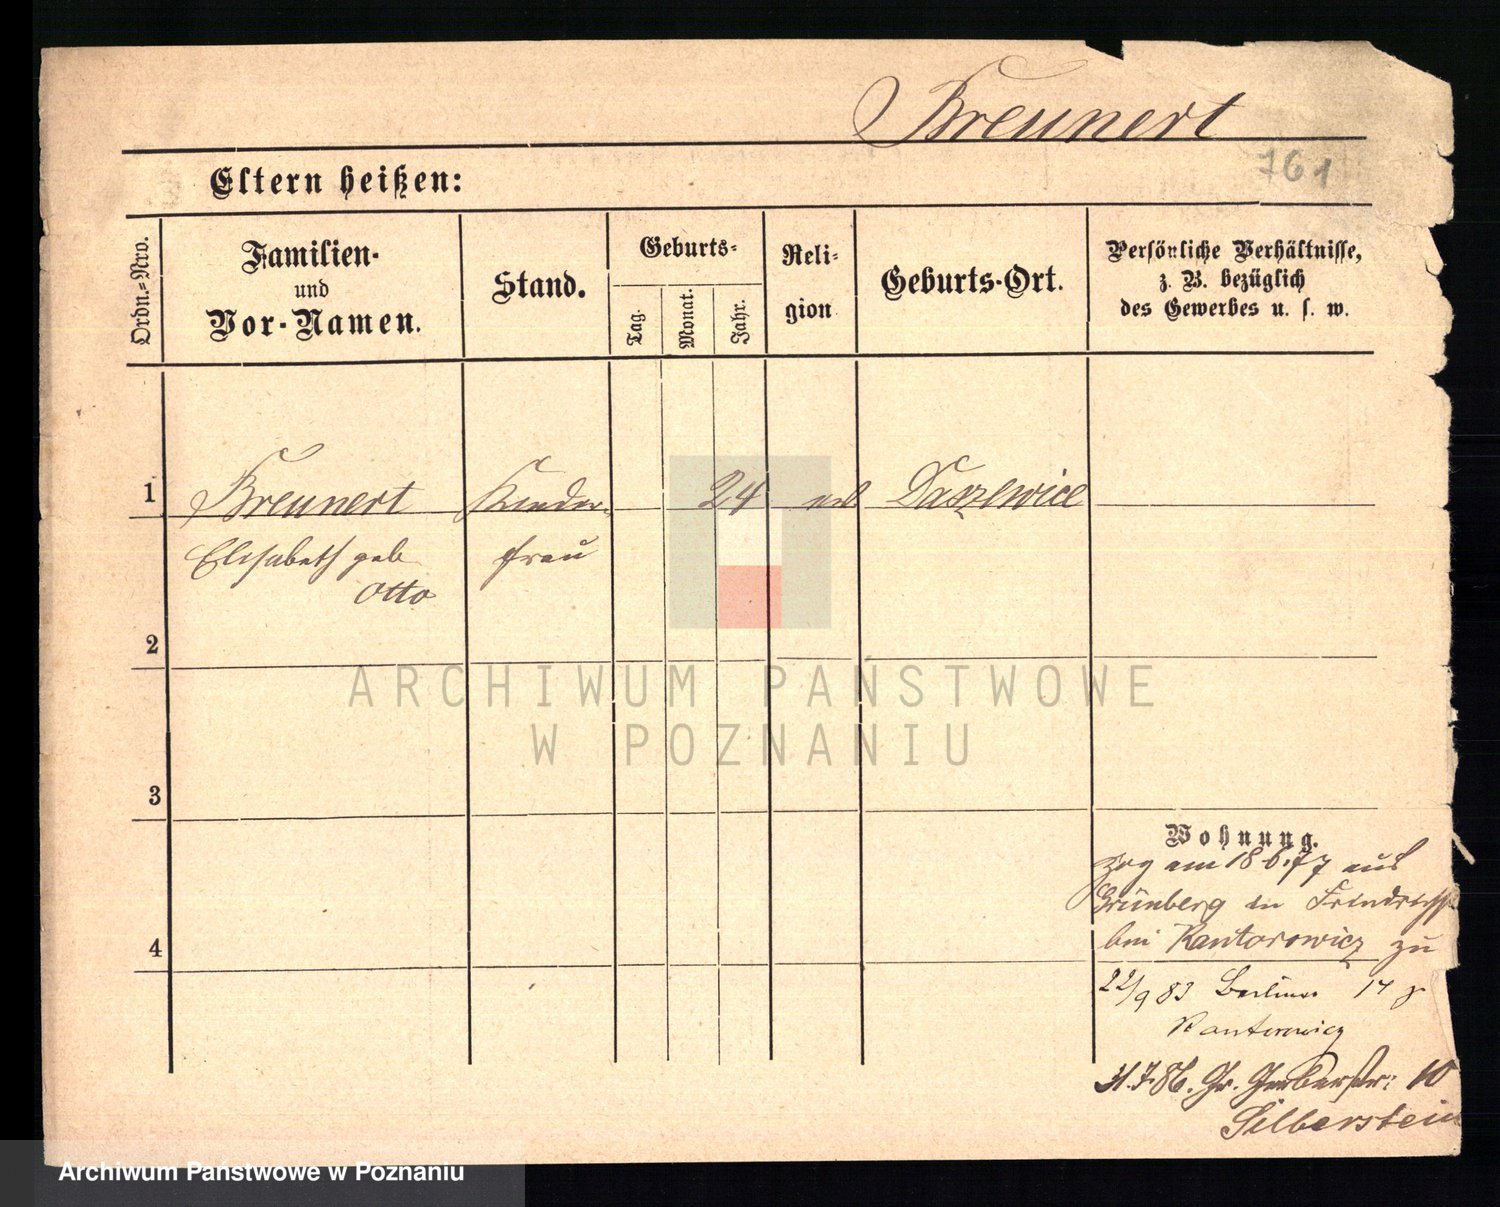 Breunert
761
Eltern heißen:
Ordn.=Nro.
Familien-
und
Vor-Namen.
Stand.
Geburts-
Tag.
Monat.
Jahr.
Reli-
gion
Geburts-Ort.
Persönliche Verhältnisse,
z. B. bezüglich
des Gewerbes u. s. w.
1
Breunert Kinder- 24 Daszewice
Elisabeth geb frau
Otto
2
ARCHIWUM PAŃSTWOWE
W POZNANIU
3
Wohnung.
Zog am 18 6.77 aus
Grünberg in
bei Kantorowicz zu
4
22/9 83 Berliner 14
Kantorowicz
31.7.86. Gr. Gerberstr: 10
Silberstein
Archiwum Państwowe w Poznaniu